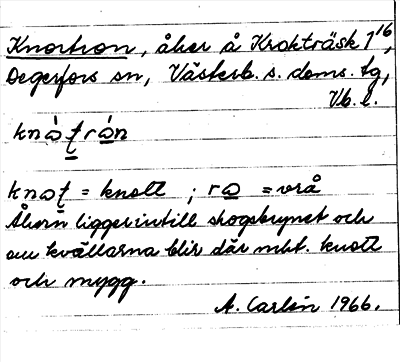 Knortron, åker å Krokträsk 1¹⁶,
Degerfors sn, Västerb. s. doms. tg,
Vb. l.
knòt̲rȯ́n
knot̲ = knott ; ro̲ = vrå
Åkern ligger intill skogsbrynet och
om kvällarna blir där mkt. knott
och mygg.
A. Carlén 1966.